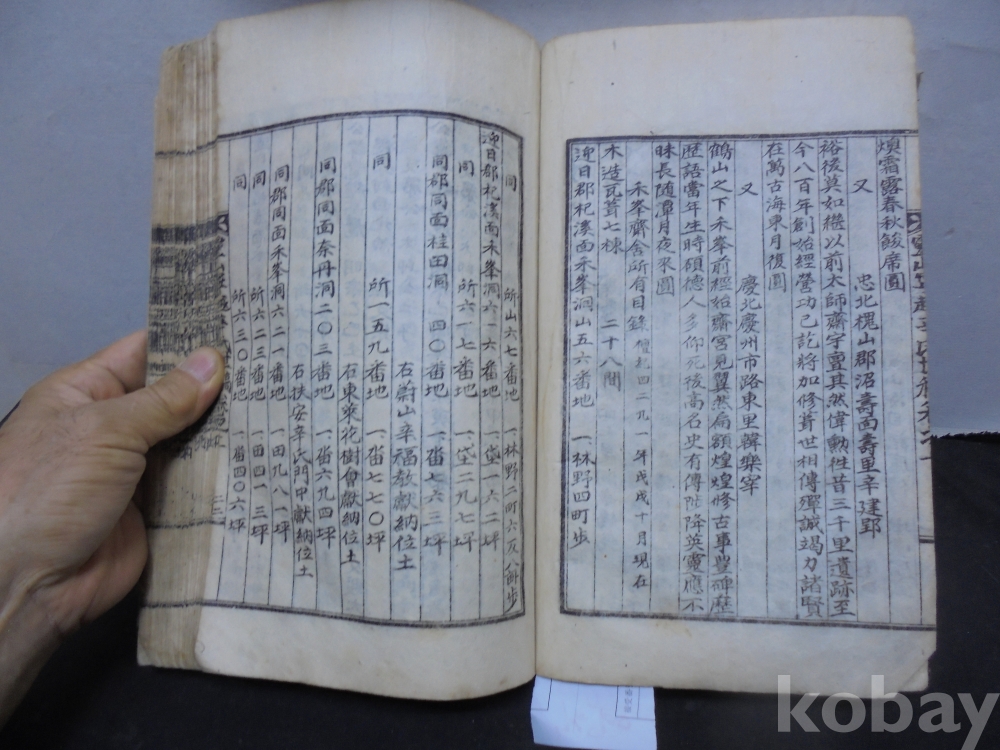 煥霜露春秋餕席圓
又 忠北槐山郡沼壽面壽里辛建郢
裕後莫如繼以前太師齋宇亶其然偉勳徃昔三千里遺跡至
今八百年創始經營功已訖將加修葺世相傳殫誠竭力諸賢
在萬古海東月復圓
又 慶北慶州市路東里韓樂宰
鶴山之下禾峯前經始齋宮見翼然扁額煌煌修古事豊碑歷
歷語當年生時碩德人多仰死後高名史有傳陟降英靈應不
昧長随潭月夜來圓
禾峯齊舍所有目錄 檀紀四二九一年戊戌十月現在
木造瓦葺七棟 二十八間
迎日郡杞溪面禾峯洞山五六番地 一、林野四町步
同 所山六七番地 一、林野二町六反八畝步
迎日郡杞溪面禾峯洞六一六番地 一、垈一六二坪
同 所六一七番地 一、垈二九七坪
同郡同面桂田洞 四〇番地 一、畓七六三坪
右蔚山辛福敎獻納位土
同 所一五九番地 一、畓七七〇坪
右東萊花樹會獻納位土
同郡同面奈丹洞二〇三番地 一、畓六九四坪
右扶安辛氏門中獻納位土
同郡同面禾峯洞六二一番地 一、田九八一坪
同 所六二三番地 一、畓四四一坪
同 所六三〇番地 一、畓四〇六坪
二二
kobay